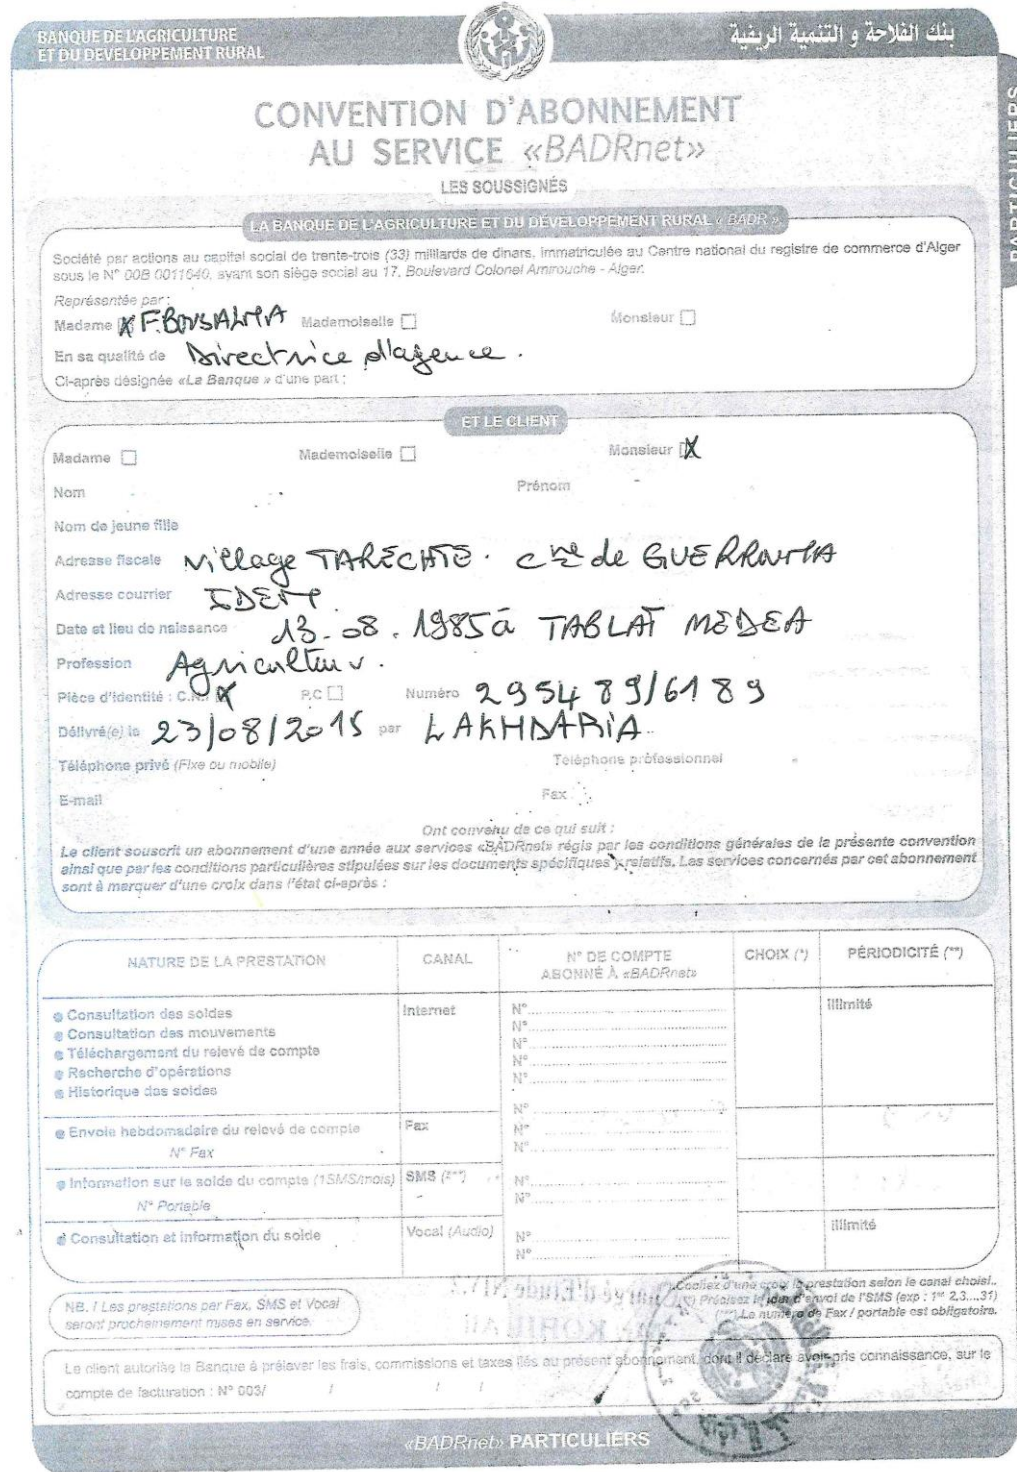 BANQUE DE L'AGRICULTURE
ET DU DEVELOPPEMENT RURAL
بنك الفلاحة و التنمية الريفية
PARTICULIERS
CONVENTION D'ABONNEMENT
AU SERVICE «BADRnet»
LES SOUSSIGNÉS
LA BANQUE DE L'AGRICULTURE ET DU DÉVELOPPEMENT RURAL « BADR »
Société par actions au capital social de trente-trois (33) milliards de dinars, immatriculée au Centre national du registre de commerce d'Alger
sous le N° 00B 0011640, ayant son siège social au 17, Boulevard Colonel Amirouche - Alger.
Représentée par :
Madame X F.BOUSALMA Mademoiselle ☐ Monsieur ☐
En sa qualité de Directrice d'agence.
Ci-après désignée «La Banque » d'une part ;
ET LE CLIENT
Madame ☐ Mademoiselle ☐ Monsieur X
Nom Prénom
Nom de jeune fille
Adresse fiscale village TARECHTE. cne de GUERROUMA
Adresse courrier IDEM.
Date et lieu de naissance 13.08.1985 à TABLAT MEDEA
Profession Agriculteur.
Pièce d'identité : C.N.I X P.C ☐ Numéro 295489/6189
Délivré(e) le 23/08/2015 par LAKHDARIA.
Téléphone privé (Fixe ou mobile) Téléphone professionnel
E-mail Fax
Ont convenu de ce qui suit :
Le client souscrit un abonnement d'une année aux services «BADRnet» régis par les conditions générales de la présente convention
ainsi que par les conditions particulières stipulées sur les documents spécifiques y relatifs. Les services concernés par cet abonnement
sont à marquer d'une croix dans l'état ci-après :
NATURE DE LA PRESTATION CANAL N° DE COMPTE CHOIX (*) PÉRIODICITÉ (**)
ABONNÉ À «BADRnet»
Consultation des soldes Internet N° illimité
Consultation des mouvements N°
Téléchargement du relevé de compte N°
Recherche d'opérations N°
Historique des soldes N°
N°
Envoie hebdomadaire du relevé de compte Fax N°
N° Fax N°
Information sur le solde du compte (1SMS/mois) SMS (***) N°
N° Portable N°
Consultation et information du solde Vocal (Audio) N° illimité
N°
NB. / Les prestations par Fax, SMS et Vocal
seront prochainement mises en service.
Cochez d'une croix la prestation selon le canal choisi.
(**) Précisez le jour d'envoi de l'SMS (exp : 1er 2,3...31)
(***) Le numéro de Fax / portable est obligatoire.
Le client autorise la Banque à prélever les frais, commissions et taxes liés au présent abonnement, dont il déclare avoir pris connaissance, sur le
compte de facturation : N° 003/ / / /
«BADRnet» PARTICULIERS